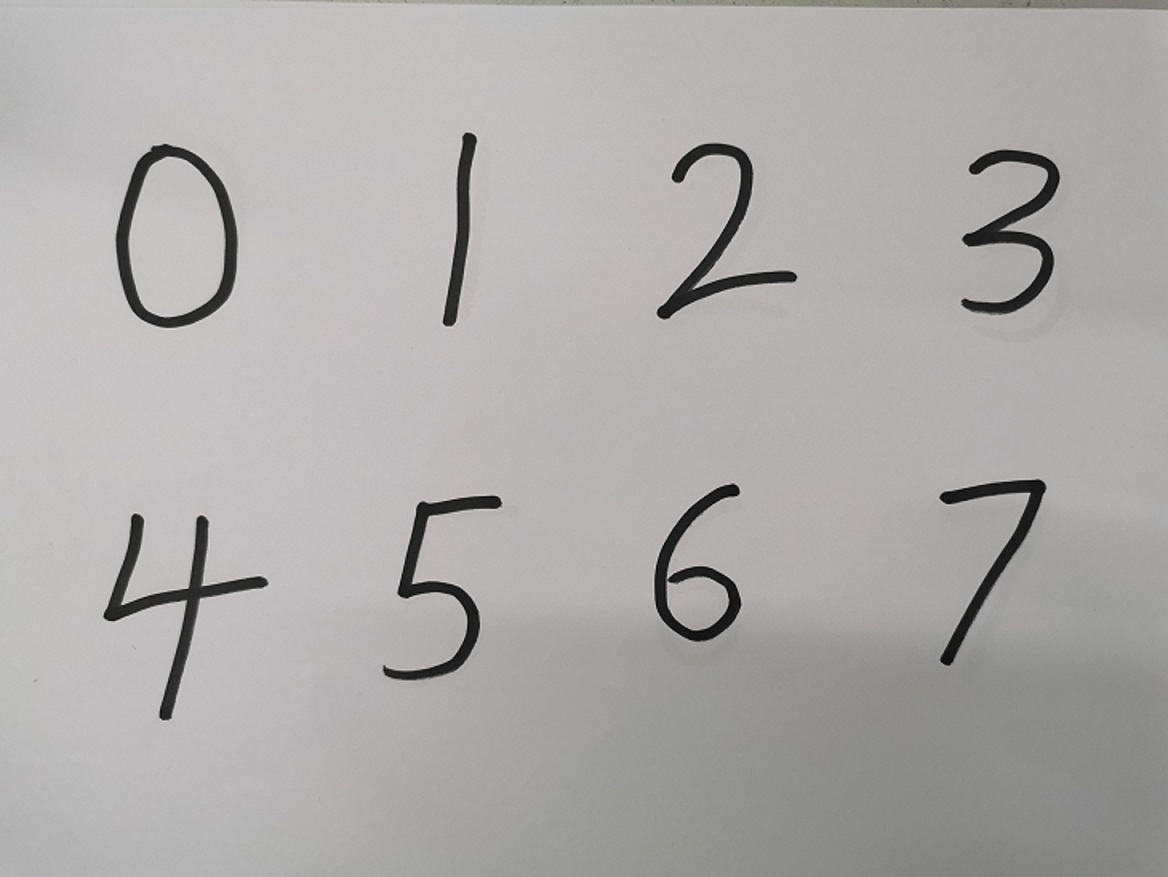 0 1 2 3
4 5 6 7